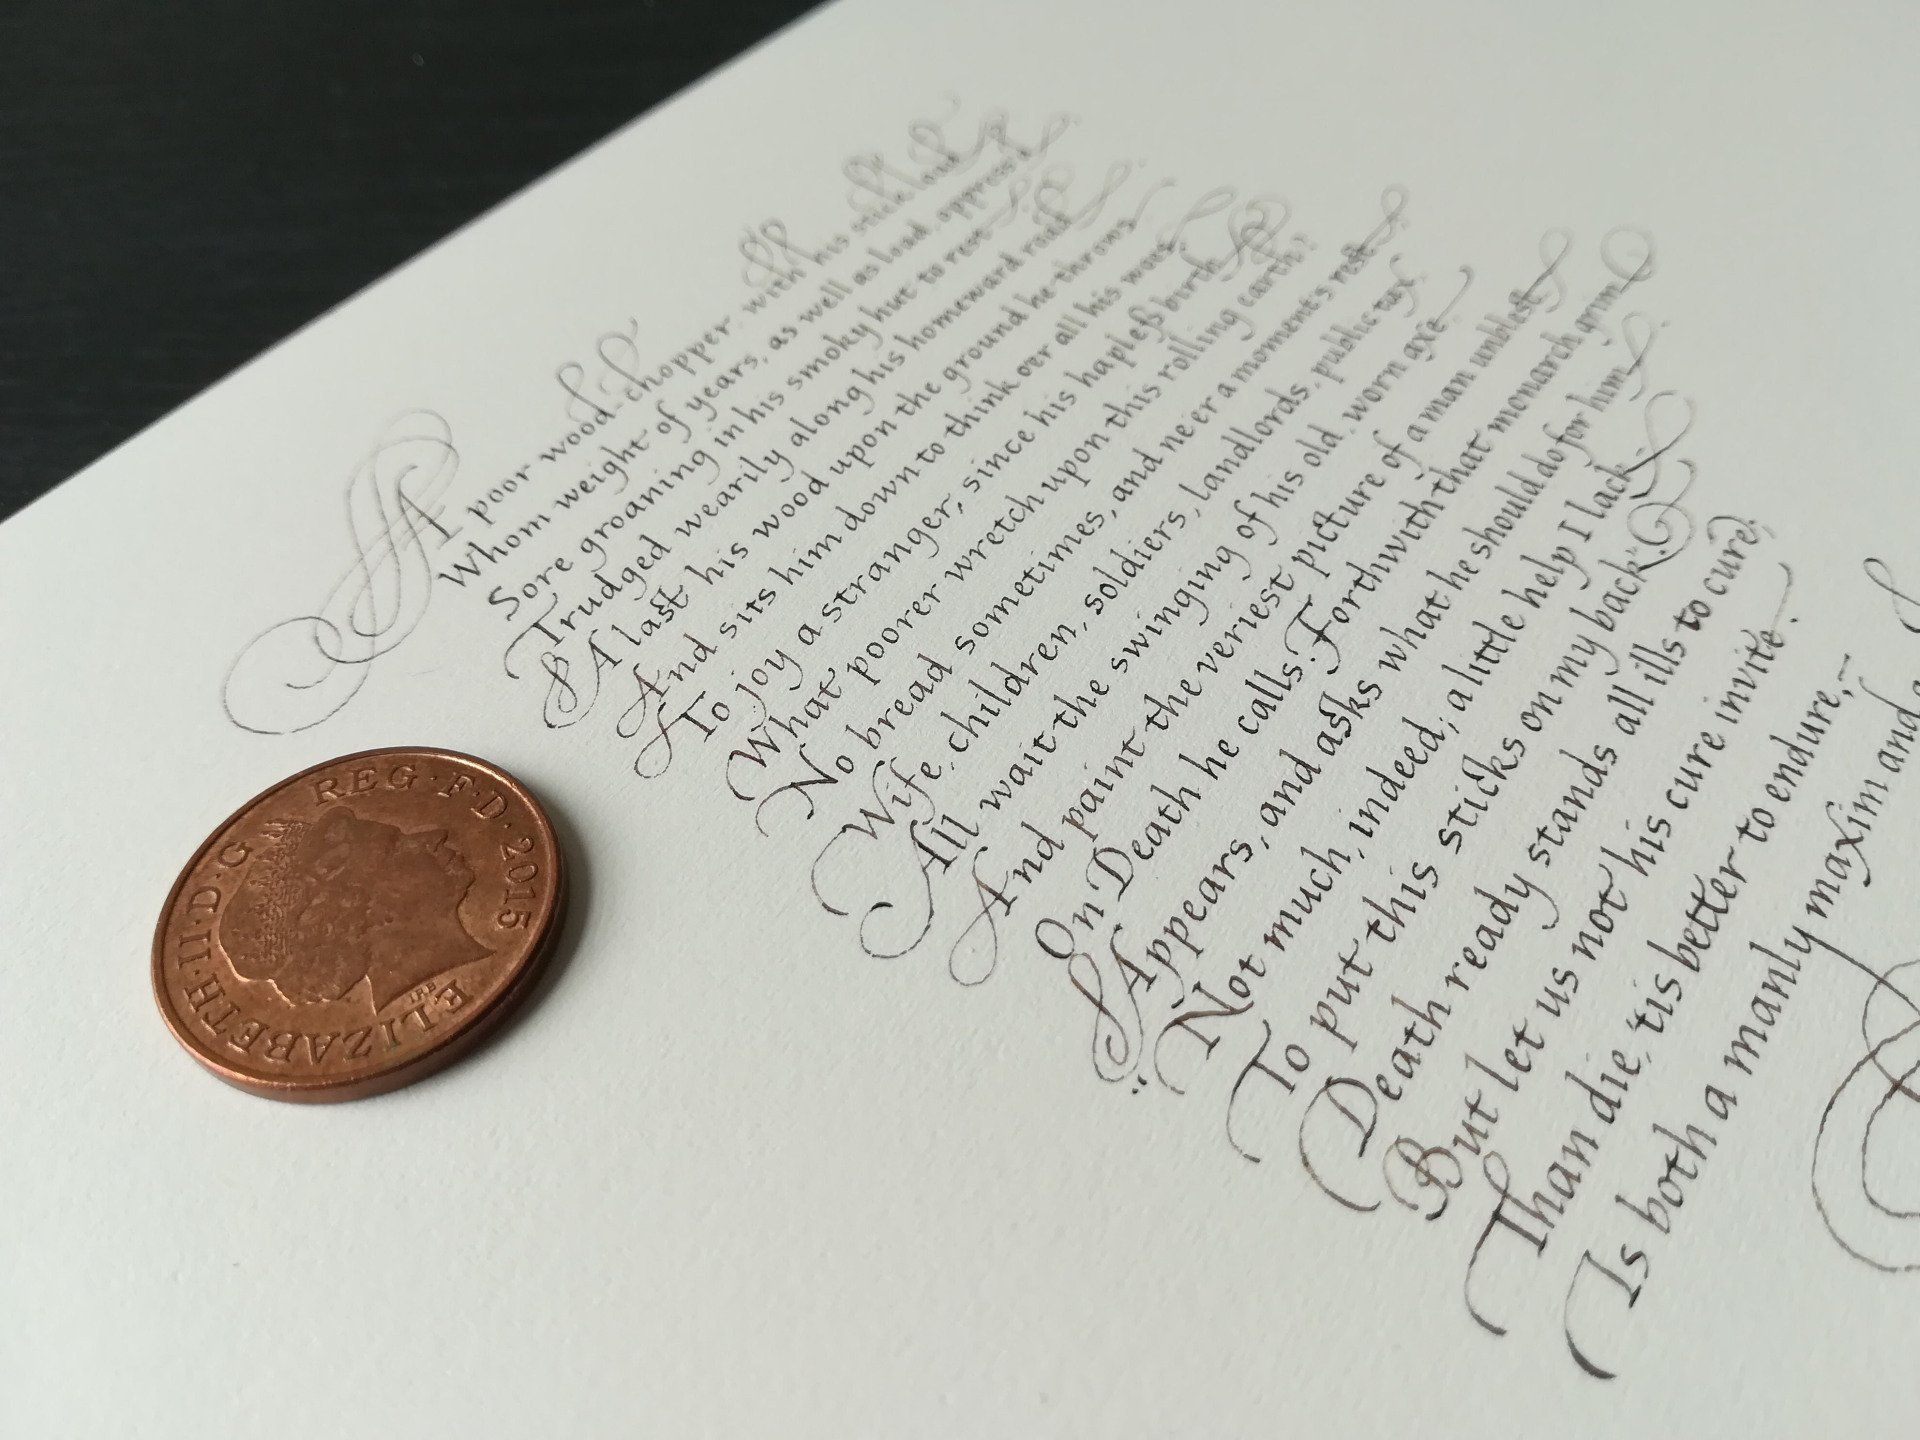 A poor wood-chopper, with his stick load,
Whom weight of years, as well as load, oppress'd,
Sore groaning in his smoky hut to rest
Trudged wearily along his homeward road
A last his wood upon the ground he throws
And sits him down to think over all his woes
To joy a stranger, since his hapleß birth
What poorer wretch upon this rolling earth?
No bread sometimes, and neer a moments rest
Wife, children, soldiers, landlords, public tax
All wait the swinging of his old, worn axe
And paint the veriest picture of a man unblest
On Death he calls. Forthwith that monarch grim
Appears, and asks what he should do for him
"Not much, indeed; a little help I lack
To put this sticks on my back".
Death ready stands all ills to cure;
But let us not his cure invite.
Than die, 'tis better to endure,-
Is both a manly maxim and
ELIZABETH·II·D·G REG·F·D·2015
IRB